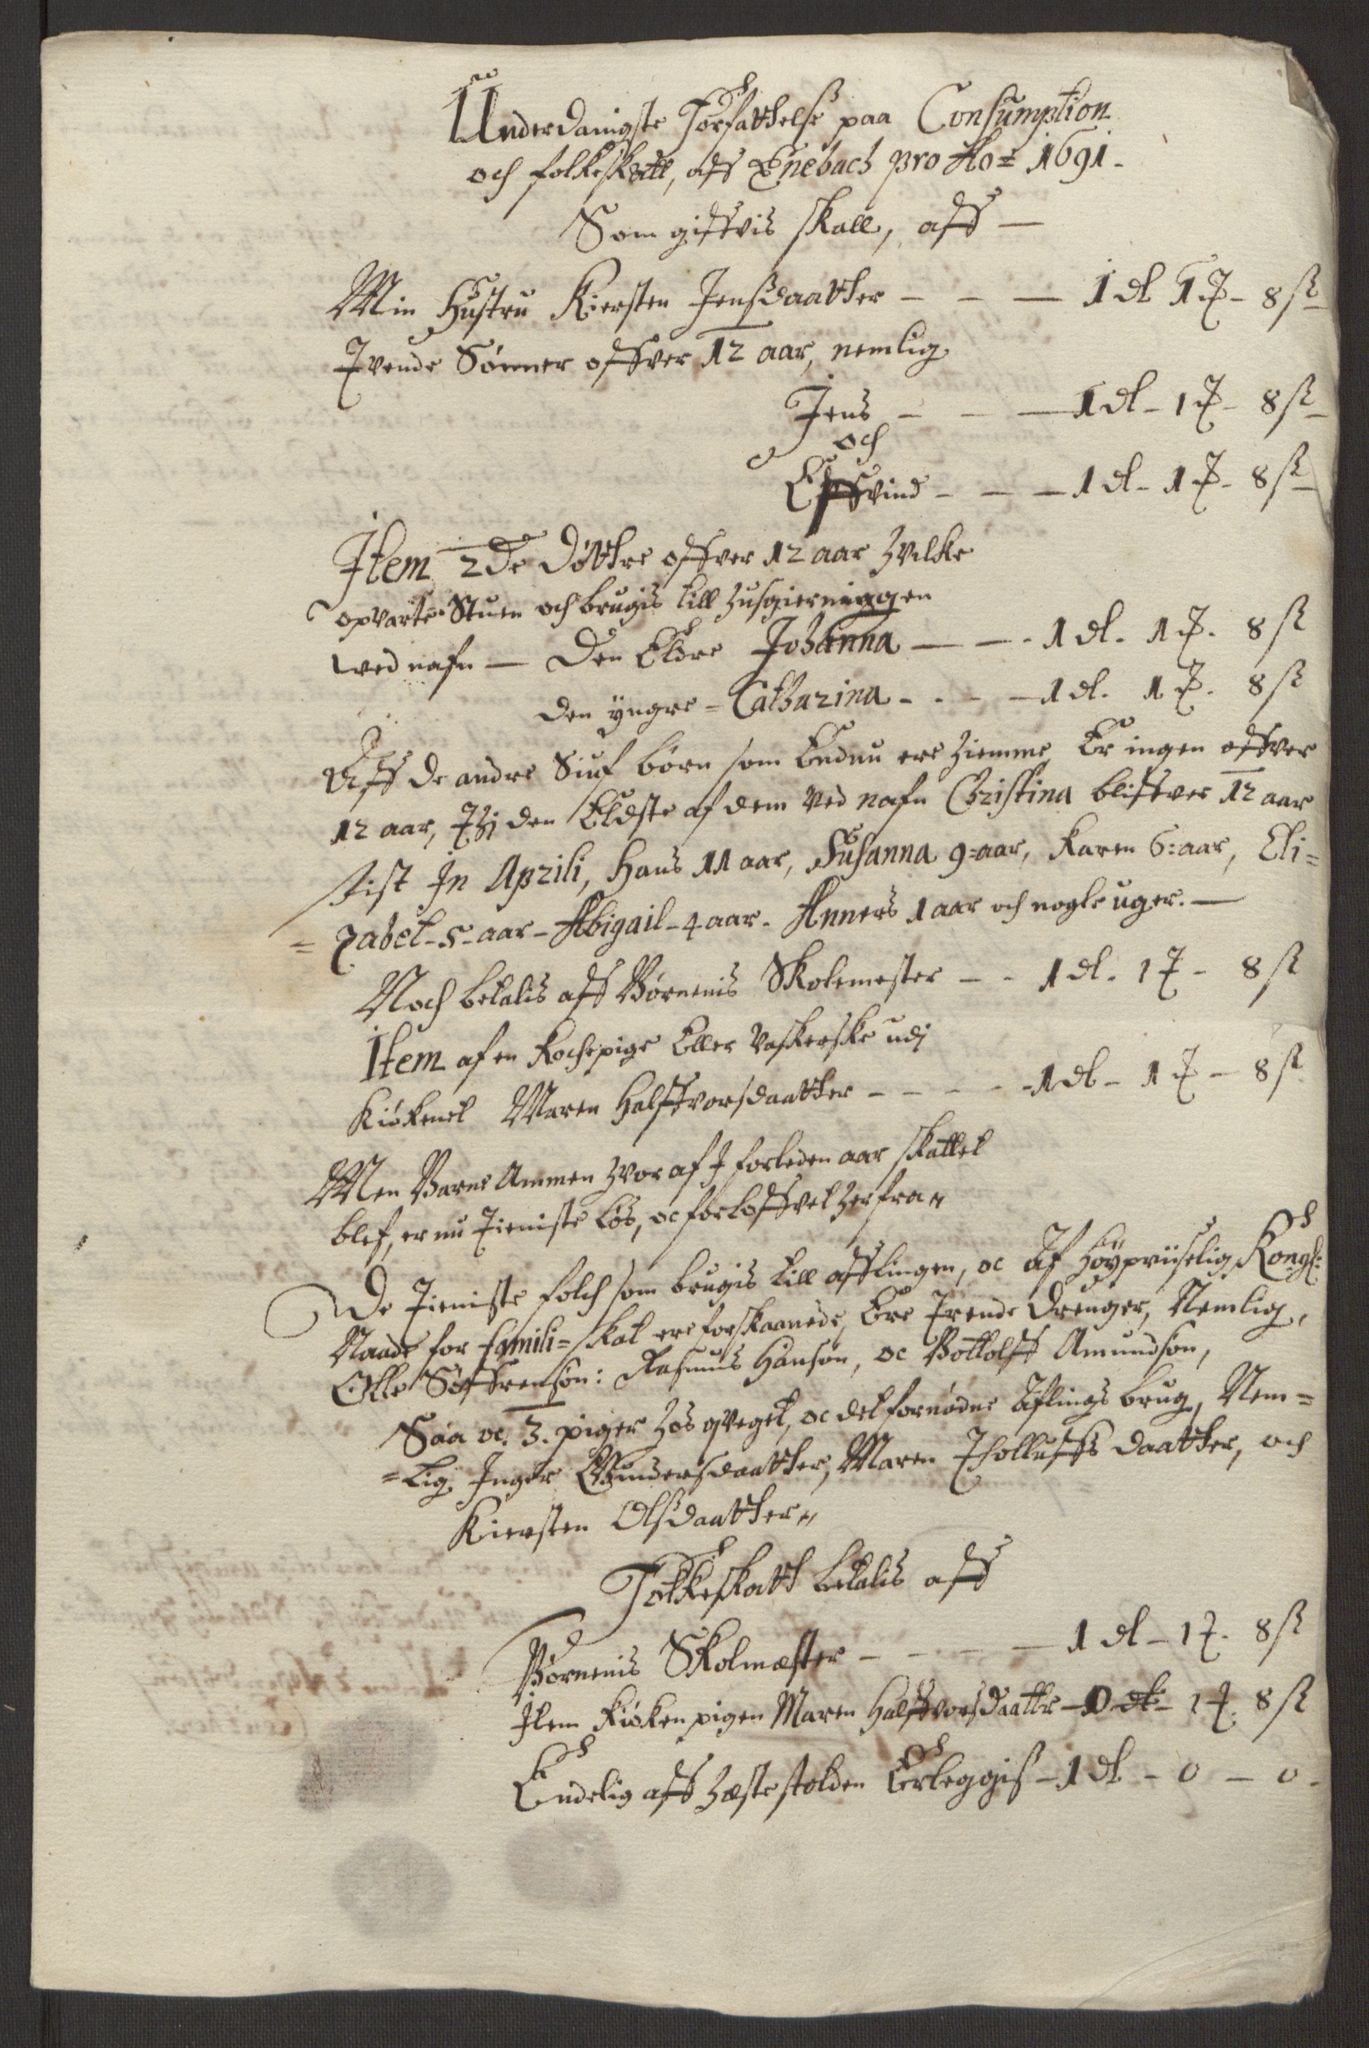 Underdanigste Forfattelse paa Consumption
och folkeskatt, aff Enebach pro Ao= 1691.
Som gifvis skall, aff —
Min Hustru Kiersten Jensdaatter - - — 1 dl 1 # - 8 ß
Tvende Sønner offver 12 aar, nemlig
Jens - - — 1 dl - 1 # - 8 ß
och
Effvind - - — 1 dl - 1 # - 8 ß
Item 2de Døttre offver 12 aar hvilke
opvarte Stuen och brugis till husgierninggen
ved nafn — Den Eldre Johanna — - 1 dl. 1 #. 8 ß
den yngre = Catharina - - - — 1 dl. 1 #. 8 ß
Aff de andre Siuf børn som Endnu ere hiemme, Er ingen offver
12 aar, Thi den Eldste af dem ved nafn Christina blifver 12 aar
sist In Aprili, Hans 11 aar, Susanna 9=aar, Karen 6=aar, Eli=
=zabet - 5 - aar - Abigail - 4 aar. Anners 1 aar och nogle uger. —
Noch betalis aff Børnenis Skolemester - - 1 dl. 1 # - 8 ß
Item af en Kochepige Eller Vaskerske udj
Kiøkenet Maren Halffvorsdaatter - - - - 1 dl - 1 # - 8 ß
Men Barne Ammen hvor af J forleden aar skattet
blef, er nu Tieniste løs, oc forloffvet herfra
De Tieniste folch som brugis till afflingen, oc Af Høypriiselig Kongl:
Naade for famili=skat ere forskaanede, Ere Trende Drenger, Nemlig,
Olle Søffrensøn: Rasmus Hansøn, oc Bottolff Amundsøn,
Saa oc. 3. piger hos qveget, oc det fornødne Aflings brug, Nem=
=lig Inger Gundersdaatter, Maren Tholluffs daatter, och
Kiersten Olsdaatter
Folkeskatt betalis aff
Børnenis Skolmæster - - - — 1 dl - 1 #. 8 ß
Item Kiøken pigen Maren Halffvorsdaatter - 0 dl - 1 #. 8 ß
Endelig aff hæste stolden Erleggis - 1 dl - 0 - 0.